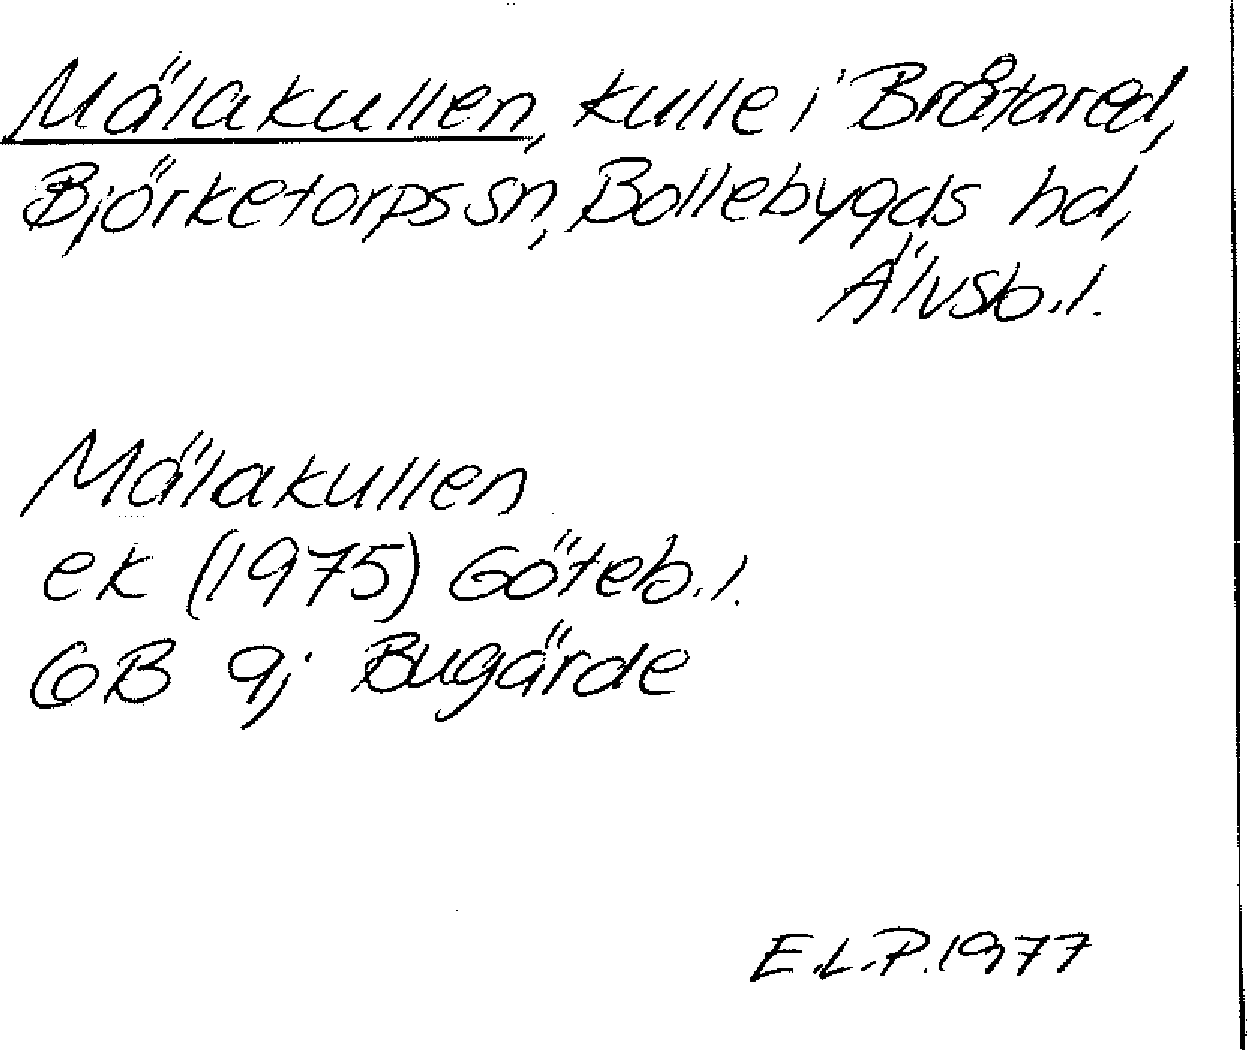 Mälakullen, kulle i Bråtared,
Björketorps sn, Bollebygds hd,
Älvsb.l.
Mälakullen
ek (1975) Göteb.l.
GB 9j Bugärde
E.L.P. 1977